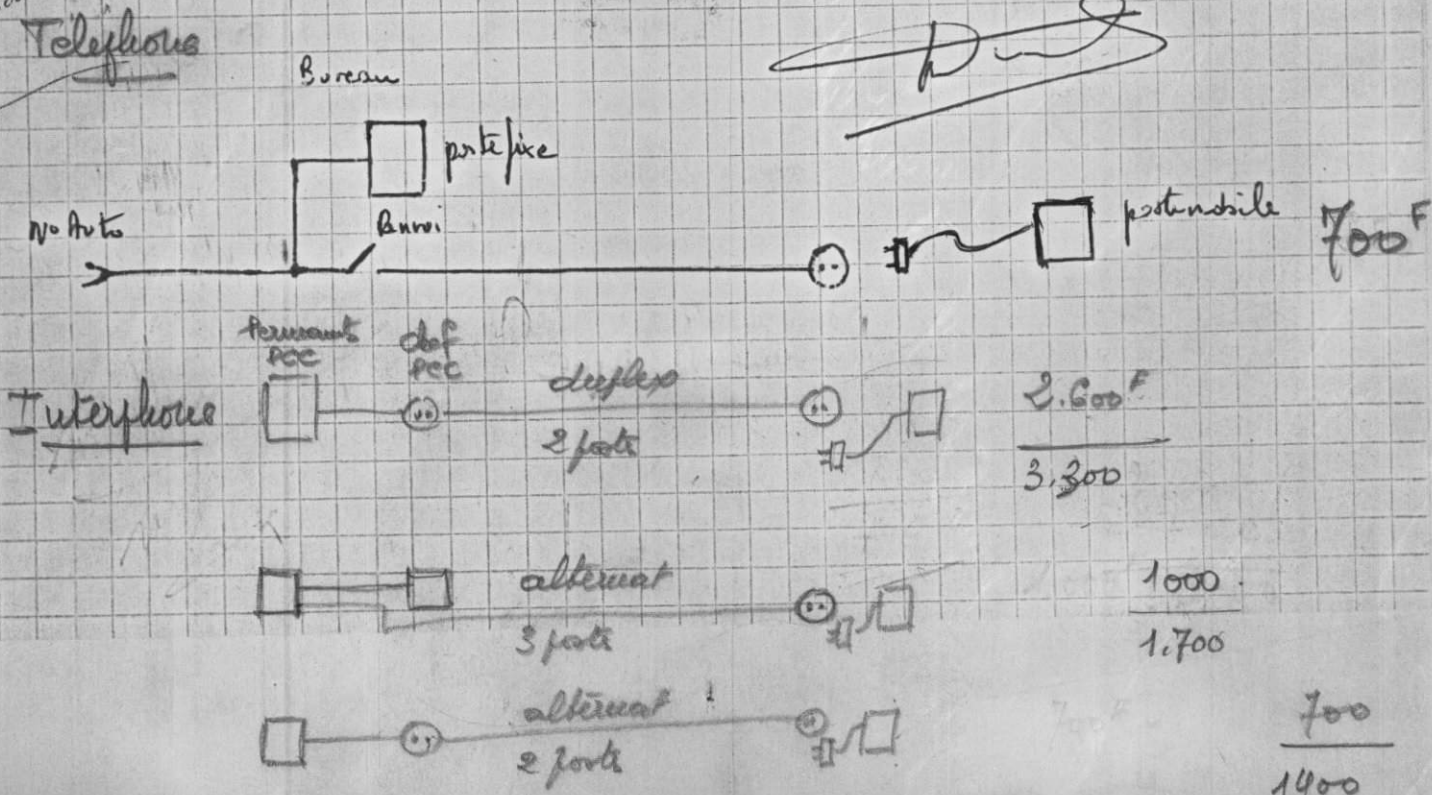 Téléphone
Bureau
poste fixe
No Auto
Renvoi
poste mobile
700 F
Permanents
PCC
chef
PCC
Interphone
duplex
2 poste
2.600 F
3.300
alternat
3 poste
1000
1.700
alternat
2 poste
700
1400